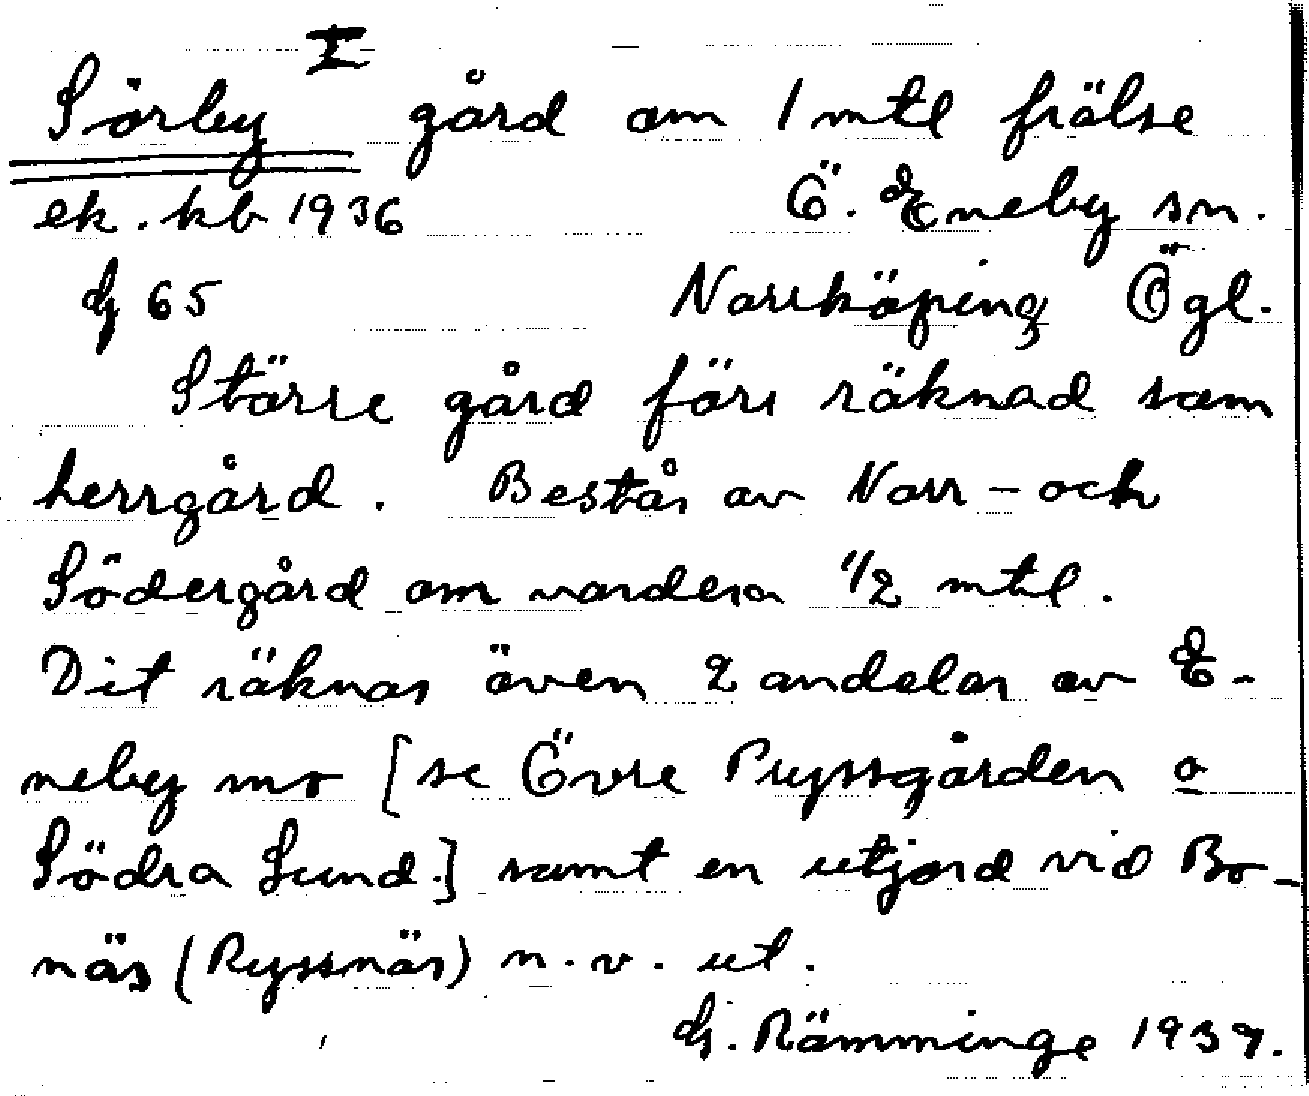 I
Sörby gård om 1 mtl frälse
ek. kb 1936 Ö. Eneby sn.
G 65 Norrköping Ögl.
Större gård förr räknad som
herrgård. Består av Norr- och
Södergård om vardera 1/2 mtl.
Dit räknas även 2 andelar av E-
neby mo [se Övre Ryssgården o
Södra Lund.] samt en utjord vid Bo-
näs (Ryssnäs) n.v. ut.
G. Rämminge 1937.